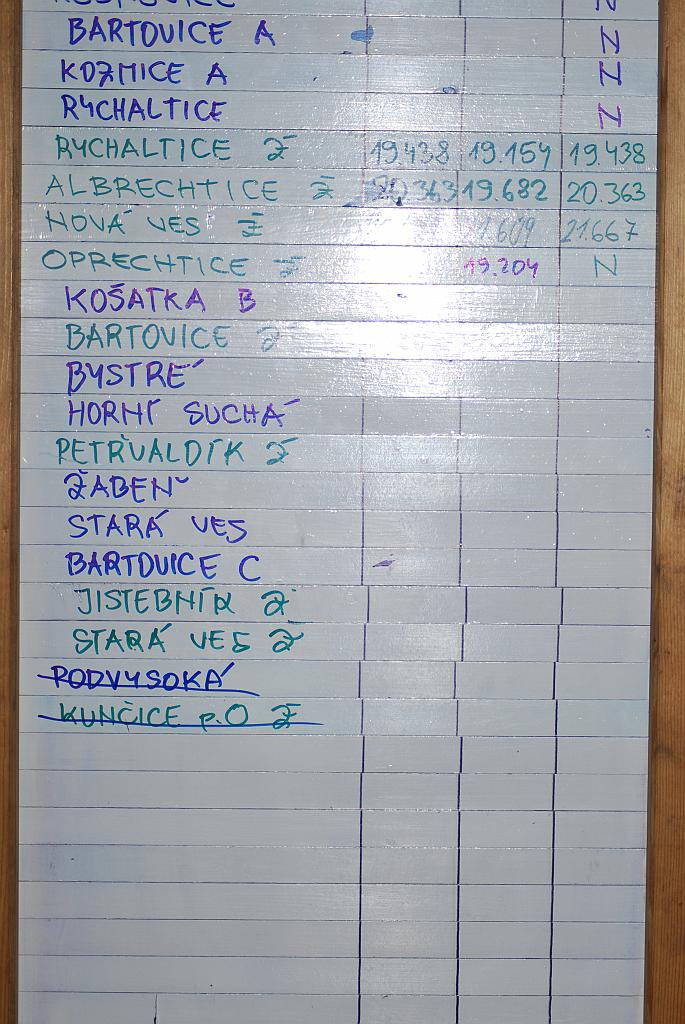 BARTOVICE A N
KOZMICE A N
RYCHALTICE N
RYCHALTICE Ž 19.438 19.154 19.438
ALBRECHTICE Ž 20.363 19.682 20.363
NOVÁ VES Ž 21.667
OPRECHTICE Ž 19.204 N
KOŠATKA B
BARTOVICE Ž
BYSTRÉ
HORNÍ SUCHÁ
PETŘVALDÍK Ž
ŽABEŇ
STARÁ VES
BARTOVICE C
JISTEBNÍK Ž
STARÁ VES Ž
PODVYSOKÁ
KUNČICE p.O Ž